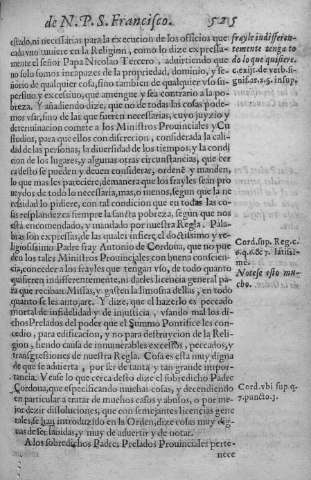 de N. P. S. Francisco. 525
estado, ni necessarias para la execucion de los officios que
cada vno tuuiere en la Religion, como lo dize expressa-
mente el señor Papa Nicolao Tercero, aduirtiendo que
no solo somos incapazes de la propriedad, dominio, y se-
ñorio de qualquier cosa, sino tambien de qualquier vso su-
perfluo y vicioso, que amengue, y sea contrario a la po-
breza. Y añadiendo dize, que no de todas las cosas pode-
mos vsar, sino de las que fueren necessarias, cuyo juyzio y
determinacion comete a los Ministros Prouinciales y Cu
stodios, para que ellos con discrecion, considerada la cali-
dad de las personas, la diuersidad de los tiempos, y la condi
cion de los lugares, y algunas otras circunstancias, que cer
ca desto se pueden y deuen considerar, ordenē y manden,
lo que mas les pareciere, de manera que los frayles seān pro
ueydos de todo lo necessario, mas, o menos, segun que la ne
cessidad lo pidiere, con tal condicion que en todas las co-
sas resplandezca siempre la sancta pobreza, segun que nos
está encomendado, y mandado por nuestra Regla. Pala-
bras son expressas, de las quales infiere el doctissimo y re-
ligiosissimo Padre fray Antonio de Cordoua, que no pue
den los tales Ministros Prouinciales con buena conscien-
cia, conceder a los frayles que tengan vso, de todo quanto
quisieren indifferentemente, ni darles licencia general pa-
ra que reciban Missas, y gasten la limosna dellas, en todo
quanto se les antojare. Y dize, que el hazerlo es peccado
mortal de infidelidad y de injusticia, vsando mal los di-
chos Prelados del poder que el Summo Pontifice les con-
cedio, para edificacion, y no para destruycion de la Reli-
gion, siendo causa de innumerables excessos, peccados, y
transgressiones de nuestra Regla. Cosa es esta muy digna
de que se aduierta, por ser de tanta y tan grande impor-
tancia. Vease lo que cerca desto dize el sobredicho Padre
Cordoua, que especificando muchas cosas, y decendiendo
en particular a tratar de muchos casos y abusos, o por me-
jor dezir dissoluciones, que con semejantes licencias gene
rales, se han introduzido en la Orden, dize cosas muy dig
nas de ser sabidas, y muy de aduertir y de notar.
A los sobredichos Padres Prelados Prouinciales perte-
nece
frayle indifferen-
temente tenga to
do lo que quisiere.
c. exijt. de verb. si-
Cord. sup. Reg. c.
6. q. 6. & 7.
me.
Notese esto mu-
cho.
Cord. vbi sup. q.
7. puncto. 3.